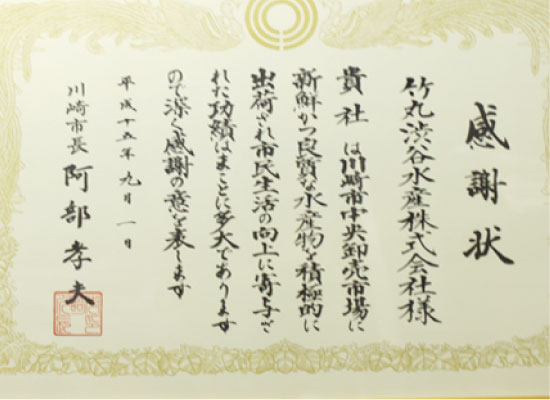 感謝状
竹丸渋谷水産株式会社様
貴社は川崎市中央卸売市場に
新鮮かつ良質な水産物を積極的に
出荷され市民生活の向上に寄与さ
れた功績はまことに多大であります
ので深く感謝の意を表します
平成十五年九月一日
川崎市長 阿部孝夫